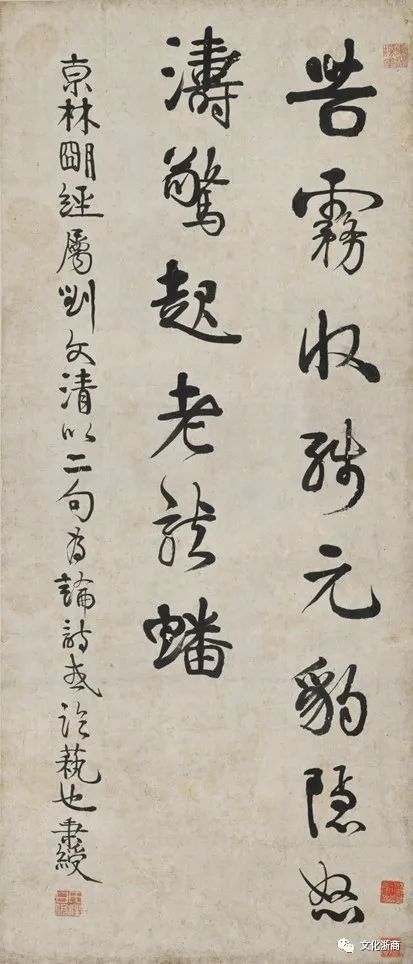 苦霧收殘元豹隱怒
濤驚起老龍蟠
京林朙經屬劉文清以二句為論詩或論蓺也秉綬
文化浙商